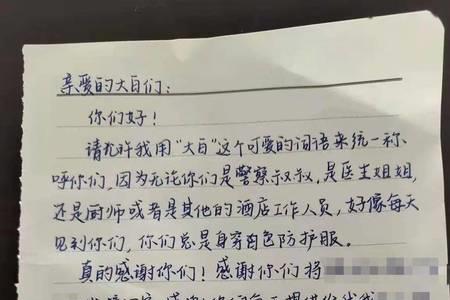 亲爱的大白们：
你们好！
请允许我用"大白"这个可爱的词语来统一称
呼你们，因为无论你们是警察叔叔，是医生姐姐，
还是厨师或者是其他的酒店工作人员，好像每天
见到你们，你们总是身穿白色防护服。
真的感谢你们！感谢你们将